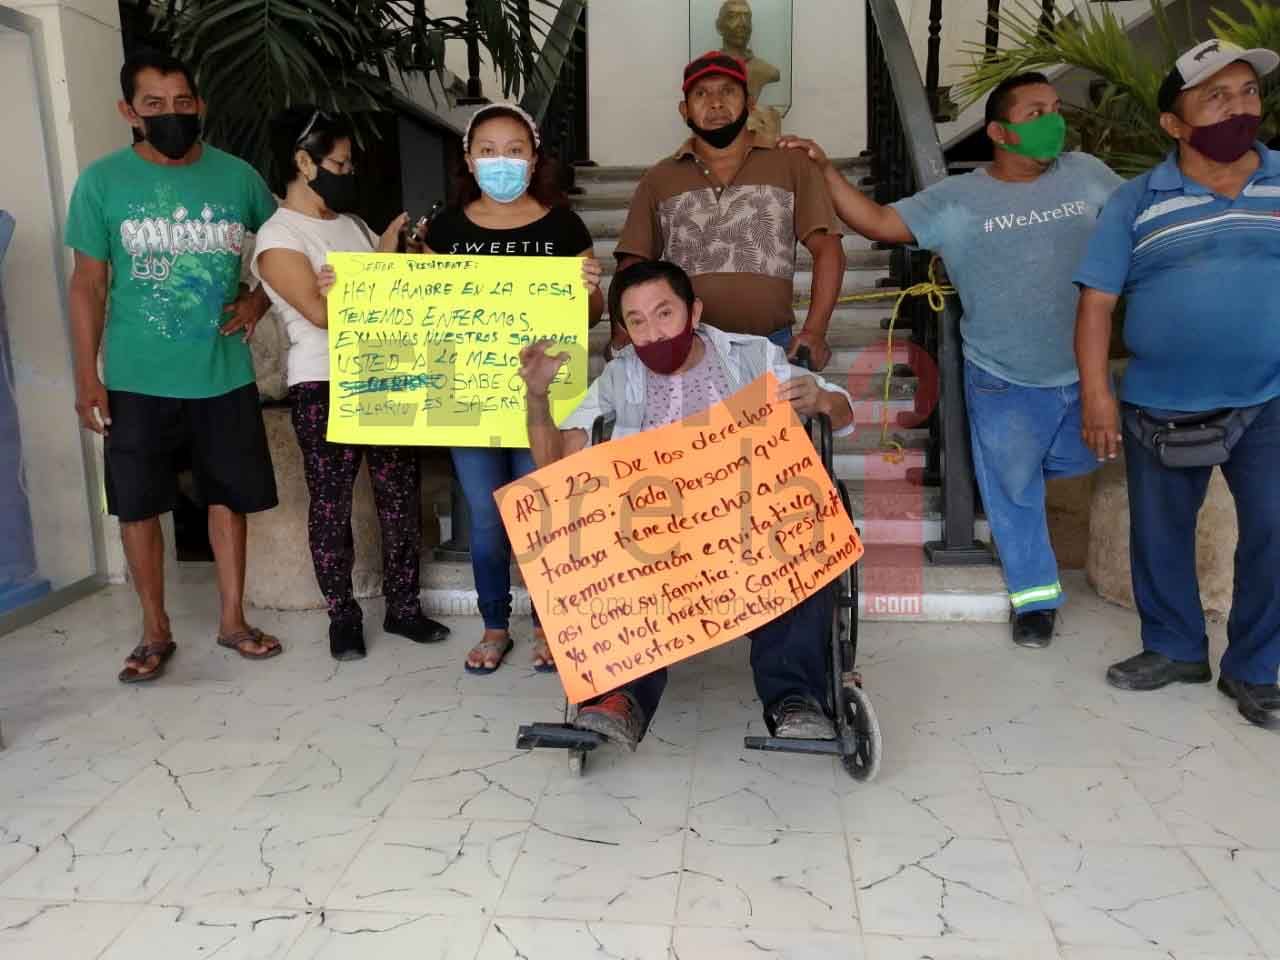 SEÑOR PRESIDENTE:
HAY HAMBRE EN LA CASA,
TENEMOS ENFERMOS,
EXIJIMOS NUESTROS SALARIOS
USTED A LO MEJOR
SABE QUE EL
SALARIO ES "SAGRADO
ART. 23 De los derechos
Humanos: Toda Persona que
trabaja tiene derecho a una
remurenación equitativa
así como su familia: Sr. President
Ya no Viole nuestras Garantia,
y nuestros Derecho Humano!
SWEETIE
México
#WeAreRF
.com